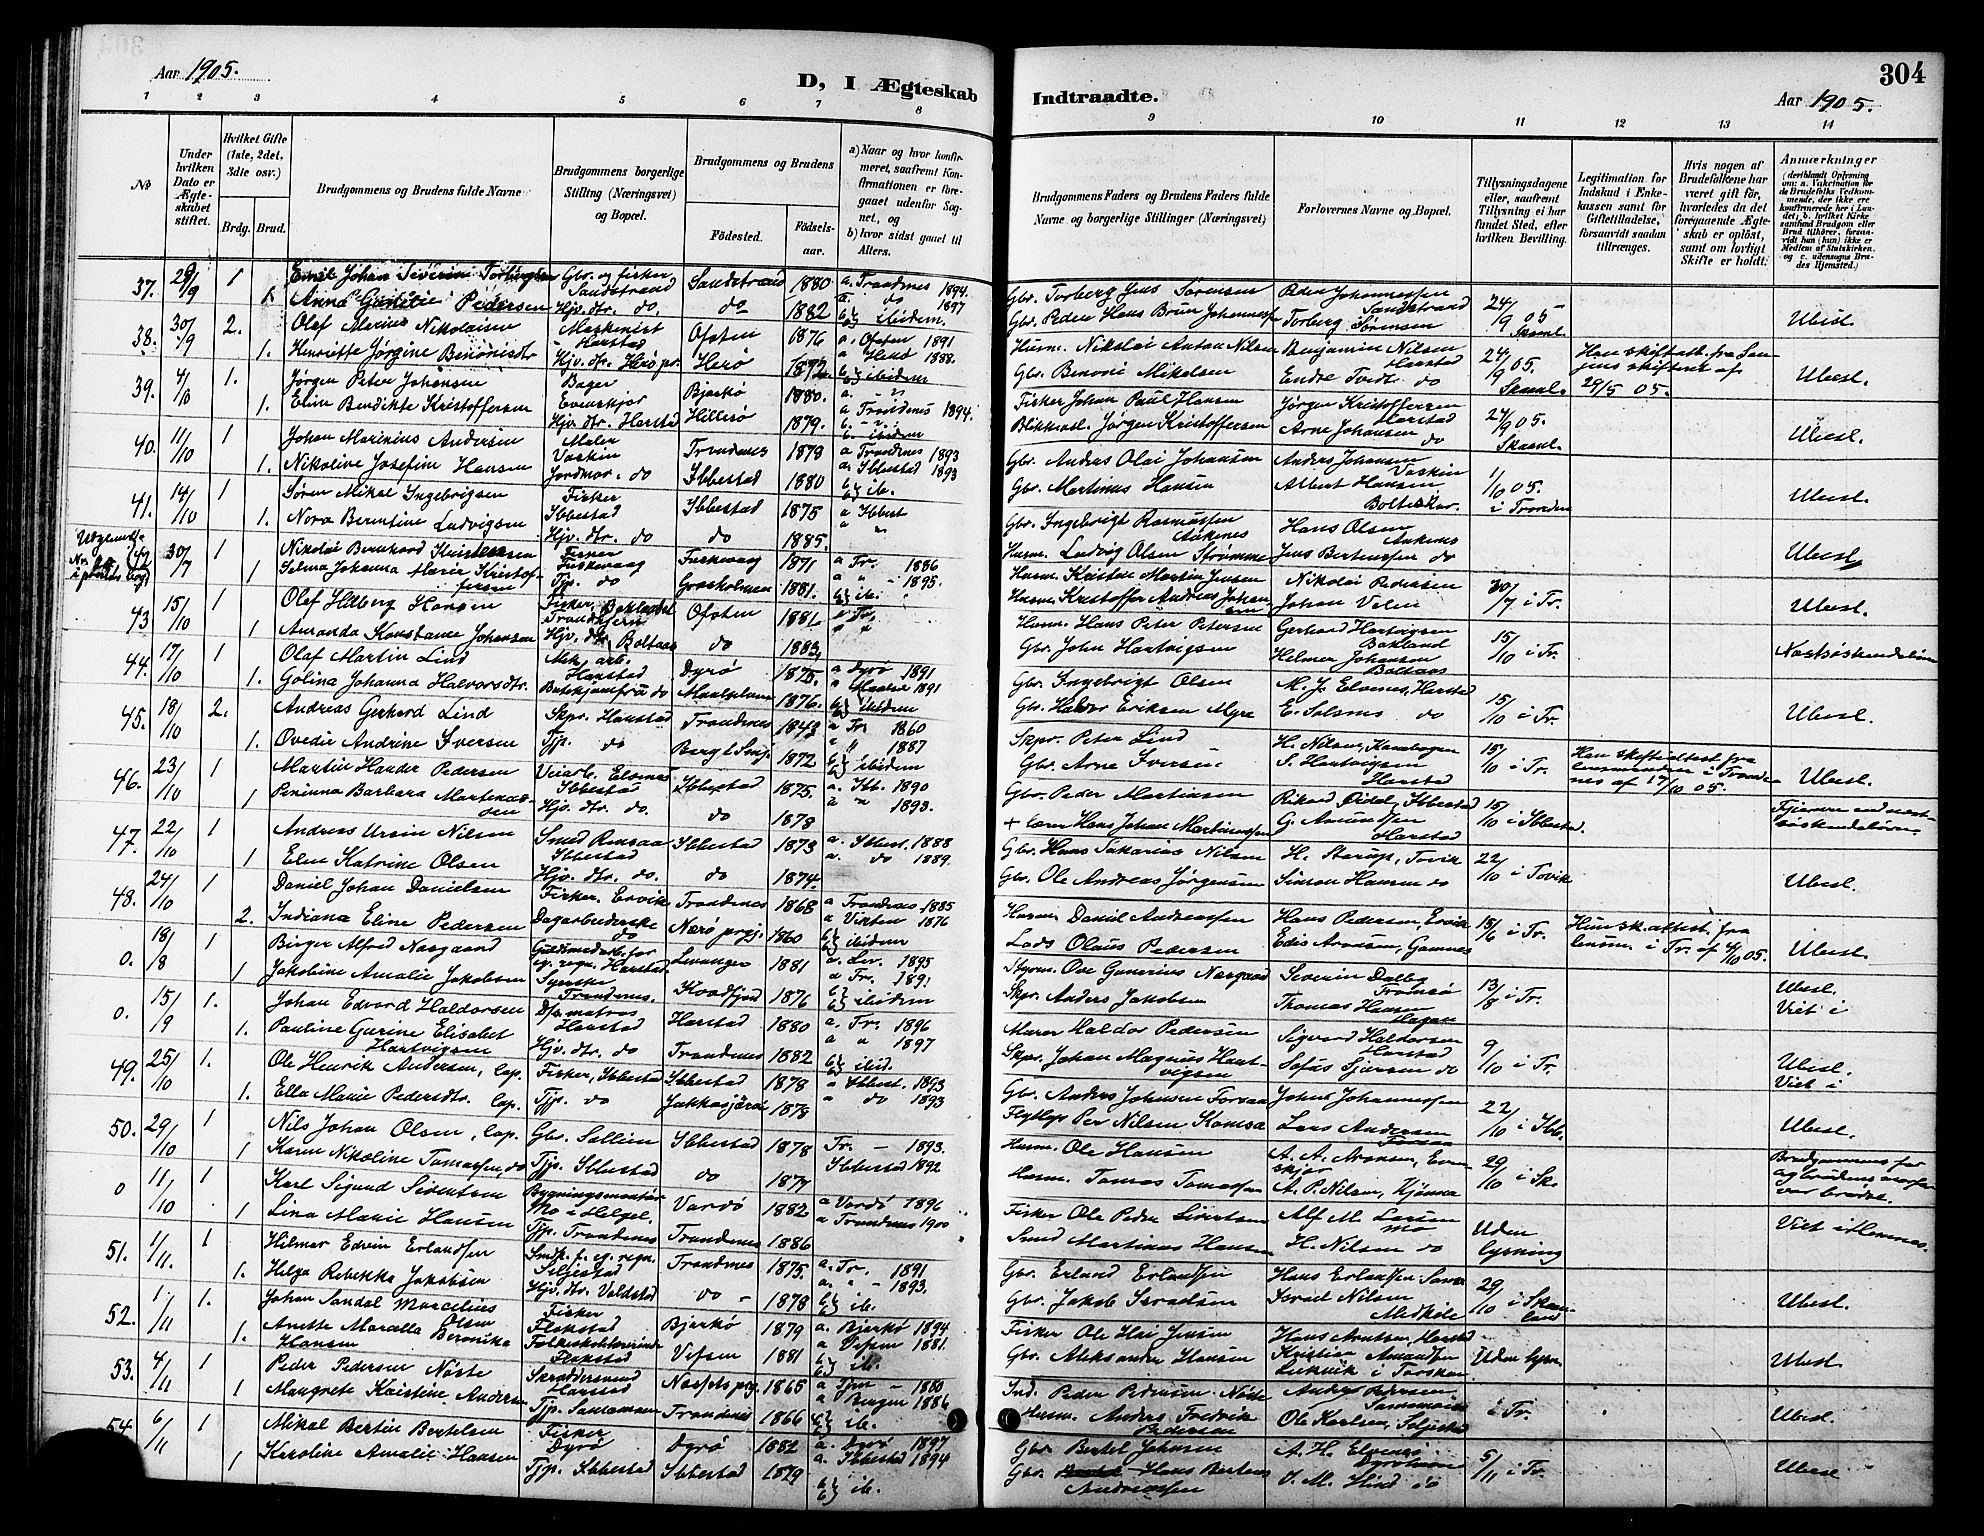 Aar 1905.
D, I Ægteskab
1 2 3 4 5 6 7 8
No
Under hvilken Dato er Ægteskabet stiftet.
Hvilket Gifte (1ste, 2det, 3die osv.)
Brdg. Brud.
Brudgommens og Brudens fulde Navne
Brudgommens borgerlige Stilling (Næringsvei) og Bopæl.
Brudgommens og Brudens
Fødested.
Fødselsaar.
a) Naar og hvor konfirmeret, saafremt Konfirmationen er foregaaet udenfor Sognet, og
b) hvor sidst gaaet til Alters.
37. 29/9 1 Emil Johan Severin Torbergsen Gbr. og fisker Sandstrand Sandstrand 1880 a. Trondenes 1894.
1 Anna Pedersen Hjv. dtr. do. do 1882 a. do 1897
38. 30/9 2. Olaf Merius Nikolaisen Maskinist Harstad Ofoten 1876 a Ofoten 1891
1. Henriette Jørgine Benonisdtr Hjv. dtr. Herø pr. Herø 1872 a Herø 1888. ibidem
39. 4/10 1. Jørgen Peter Johansen Bager Evenskjer Bjarkø 1880.
1. Eline Bendikte Kristoffersen Hjv. dtr. Harstad Hillesø 1879. a Trondenes 1894.
40. 11/10 1 Johan Marinius Andersen Maler Vaskin Trondenes 1878 a Trondenes 1893
1. Nikoline Josefine Hansen Jordmor. do Ibbestad 1880 a. Ibbestad 1893
41. 14/10 1 Søren Mikal Ingebrigtsen Fisker Ibbestad Ibbestad 1875 a Ibbest
1. Nora Berntine Ludvigsen Hjv. dtr. do do 1885.
42 30/7 1 Nikolai Bernhard Kristensen Fisker Fuskevaag Fuskevaag 1871 a Tr. 1886
1 Selma Johanna Marie Kristoffersen Tjp. do Grasholmen 1881. a " 1895.
43 15/10 1 Olaf Hilberg Hansen Fisker, Bokland Ofoten 1881 a Tr.
1 Amanda Konstance Johansen Hjv. dtr. Boltaas do 1883.
44. 17/10 1 Olaf Martin Lind Mek. arb. Harstad Dyrø 1875. a Dyrø 1891
1. Golina Johanna Halvorsdtr. Butikjomfru do Maalselven 1876. a Maalse 1891
45. 18/10 2. Andreas Gerhard Lind Skpr. Harstad Trondenes 1843 a Tr. 1860
1. Ovedie Andrine Iversen Tjp. do 1872 a " 1887
46. 23/10 1 Martin Hander Pedersen Veiarb. Elvenes Ibbestad Ibbestad 1875. a. Ibb. 1890
1 Peninna Barbara Martinussen Hjv. dtr. do. do 1878 a " 1893.
47. 22/10 1 Andreas Ursin Nilsen Smed Rensaa Ibbestad Ibbestad 1873 a. Ibbest. 1888
1 Elen Katrine Olsen Hjv. dtr. do. do 1874. a. do 1889.
48. 24/10 1 Daniel Johan Danielsen Fisker, Ervik Trondenes 1868 a Trondenes 1885
2. Indiana Eline Pedersen Dagarbeiderske do Nærø prgj. 1860 a Vikten 1876
0. 18/8 1 Birger Alfred Norgaard Guldsmedarb. for eg. regn. Harstad Levanger 1881 a. Lev. 1895
1 Jakobine Amalie Jakobsen Syerske Trondenes. Kvædfjord 1876 a Tr. 1891
0. 15/9 1. Johan Edvard Haldorsen Dpsmatros Harstad Harstad 1880 a. Tr. 1896
1. Pauline Gurine Elisabet Hartvigsen Hjv. dtr. do Trondenes 1882 a " 1897
49. 25/10 1. Ole Henrik Andersen, lap. Fisker, Ibbestad Ibbestad 1878 a Ibbest. 1893
1. Ella Marie Pedersdtr. lap. Tjp. do Jukkasjärvi 1878 a do 1893
50. 29/10 1 Nils Johan Olsen, lap. Gbr. Sollien Ibbestad 1878 Tr. - 1893.
1 Karen Nikoline Tomassen, do Tjp. Ibbestad do 1877 Ibbestad 1892
0 11/10 1 Karl Sigurd Sivertsen Bygningsmontør Mo i Helgel. Vardø 1882 a Vardø 1896
1 Lina Marie Hansen Tjp. Trondenes Trondenes 1886 a Trondenes 1900
51. 1/11. 1 Hilmar Edvin Erlandsen Smd. f. eg. regn. Seljestad Trondenes 1875. a. Tr. 1891
1. Helga Rebekka Jakobsen Hjv. dtr. Voldstad do - 1878 a. " - 1893.
52. 1/11 1. Johan Sandal Marcelius Olsen Fisker Flakstad Bjarkø 1879 a. Bjarkø 1894
1. Anette Marcella Beronika Hansen Flakstad Vefsen 1881 a Vefsen 1881.
53. 4/11 1 Peder Pedersen Nøste Skræddersvend Harstad 1865 a
1 Maugrete Kristine Andersen Tjp. Trondenes 1866 a Bergen 1886
54. 6/11 1 Mikal Bertin Bertelsen Fisker Dyrø Dyrø 1882 a. Dyrø 1897
1 Karoline Amalie Hansen Tjp. Ibbestad Ibbestad 1879 a Ibbestad 1894
304
Indtraadte.
Aar 1905.
9 10 11 12 13 14
Brudgommens Faders og Brudens Faders fulde Navne og borgerlige Stillinger (Næringsvei)
Forlovernes Navne og Bopæl.
Tillysningsdagene eller, saafremt Tillysning ei har fundet Sted, efter hvilken Bevilling.
Legitimation for Indskud i Enkekassen samt for Giftetilladelse, forsaavidt saadan tiltrænges.
Hvis nogen af Brudefolkene har været gift før, hvorledes da det foregaaende Ægteskab er opløst, samt om lovligt Skifte er holdt.
Anmærkninger
(deriblandt Oplysning om: a. Vakcination for de Brudefolks Vedkommende, der ikke ere konfirmerede her i Landet; b. hvilket Kirkesamfund Brudgom eller Brud tilhører, forsaavidt han (hun) ikke er Medlem af Statskirken. og c. udensogns Brudes Hjemsted.)
Gbr. Torberg Jens Sørensen Peder Johannessen Sandstrand 24/9 05 -
Gbr. Peder Hans Brun Johannessen Torberg Sørensen Skaanl. Ubesl.
Husm. Nikolai Anton Nilsen Benjamin Nilsen Harstad 24/9 05. Han skifteatt. fra Senjens skifteret af
Gbr. Benoni Mikelsen Endre Tvedt do Skaanl. 29/5 05. Ubesl.
Fisker Johan Paul Hansen Jørgen Kristoffersen Harstad 24/9 05.
Blikkensl. Jørgen Kristoffersen Arne Johansen do Skaanl. Ubesl.
Gbr. Anders Olai Johansen Anders Johansen Vaskin 1/10 05.
Gbr. Martinus Hansen Albert Hansen Bolteskar. i Tronden Ubesl.
Gbr. Ingebrigt Rasmussen Aankenes Hans Olsen Ankenes
Husm. Ludvig Olsen Strømme Jens Berntsen do Ubesl.
Husm. Kristen Martin Jensen Nikolai Pedersen 30/7 i Tr.
Husm. Kristoffer Andreas Johansen Johan Velin Ubesl.
Husm. Hans Peter Petersen Gerhard Hartvigsen Bokland 15/10 i Tr.
Gbr. John Hartvigsen Helmer Johansen Boltaas Næstsøskendebørn
Gbr. Ingebrigt Olsen M. J. Elvenes, Harstad 15/10 i Tr.
Gbr. Haldor Eriksen Myre E. Solsnes do Ubesl.
Skpr. Peter Lind H. Nilsen, Kanebogen 15/10 i Tr. Han skifteattest fra lensmanden i Trondenes af 17/10 05.
Gbr. Arne Iversen S. Hartvigsen Harstad Ubesl.
Gbr. Peder Martinsen Rikard Ibbestad 15/10 i Ibbestad Fjerere end næstsøskendebørn
+ Lærer Hans Johan Martinussen G. Amundsen Harstad
Gbr. Hans Sakarias Nilsen H. Starup, Tovik 22/10 i Tovik
Gbr. Ole Andreas Jørgensen Simon Hansen do Ubesl.
Husm Daniel Andreassen Hans Pedersen, Ervik 18/6 i Tr. Hun sk. attest. fra lensm. i Tr. af 4/10 05.
Lods Olaus Pedersen Edis Arnesen, Gamnes Ubesl.
Styrm. Ove Gunerius Norgaard Severin Dalbo Tromsø 13/8 i Tr. Ubesl.
Skpr. Anders Jakobsen Thomas Hansen Hagan Viet i
Murer Haldor Pedersen Sigvard Haldorsen Harstad 9/10 i Tr. Ubesl.
Skpr. Johan Magnus Hartvigsen Sofus Sjursen do Viet i
Gbr. Anders Johnsen Forsaa Johan Johannessen 22/10 i Ibb.
Flytlap Per Nilsen Komsa Lars Andersen Forsaa Ubesl.
Husm. Ole Hansen A. A. Aronsen, Evenskjer 29/10 i Sk. Brudgommens far og brudens morfar var brødre.
Husm. Tomas Tomassen A. P. Nilsen, Kjønna
Fisker Ole Peder Sivertsen Alf M. Larsen Mo Uden lysning Viet i Hemnes.
Smed Martinus Hansen H. Nilsen do
Gbr. Erland Erlandsen Hans Erlandsen Sama 29/10 i Skaanland
Gbr. Jakob Israelsen Israel Nilsen Medkile Ubesl.
Fisker Ole Hai Jensen Hans Knutsen, Harstad Uden lysn.
Gbr. Aleksander Hansen Kristian Amundsen Leikvik i Torsken Ubesl.
Ind. Peder Pedersen Nøste Anders Pedersen i Tr.
Husm. Anders Fredrik Pedersen Ole Karlsen, Seljestad Ubesl.
Gbr Bertel Johnsen A. H. Elvenes 5/11 i Tr.
Gbr. Hans Bertens Andreassen O. M. Hind do Ubesl